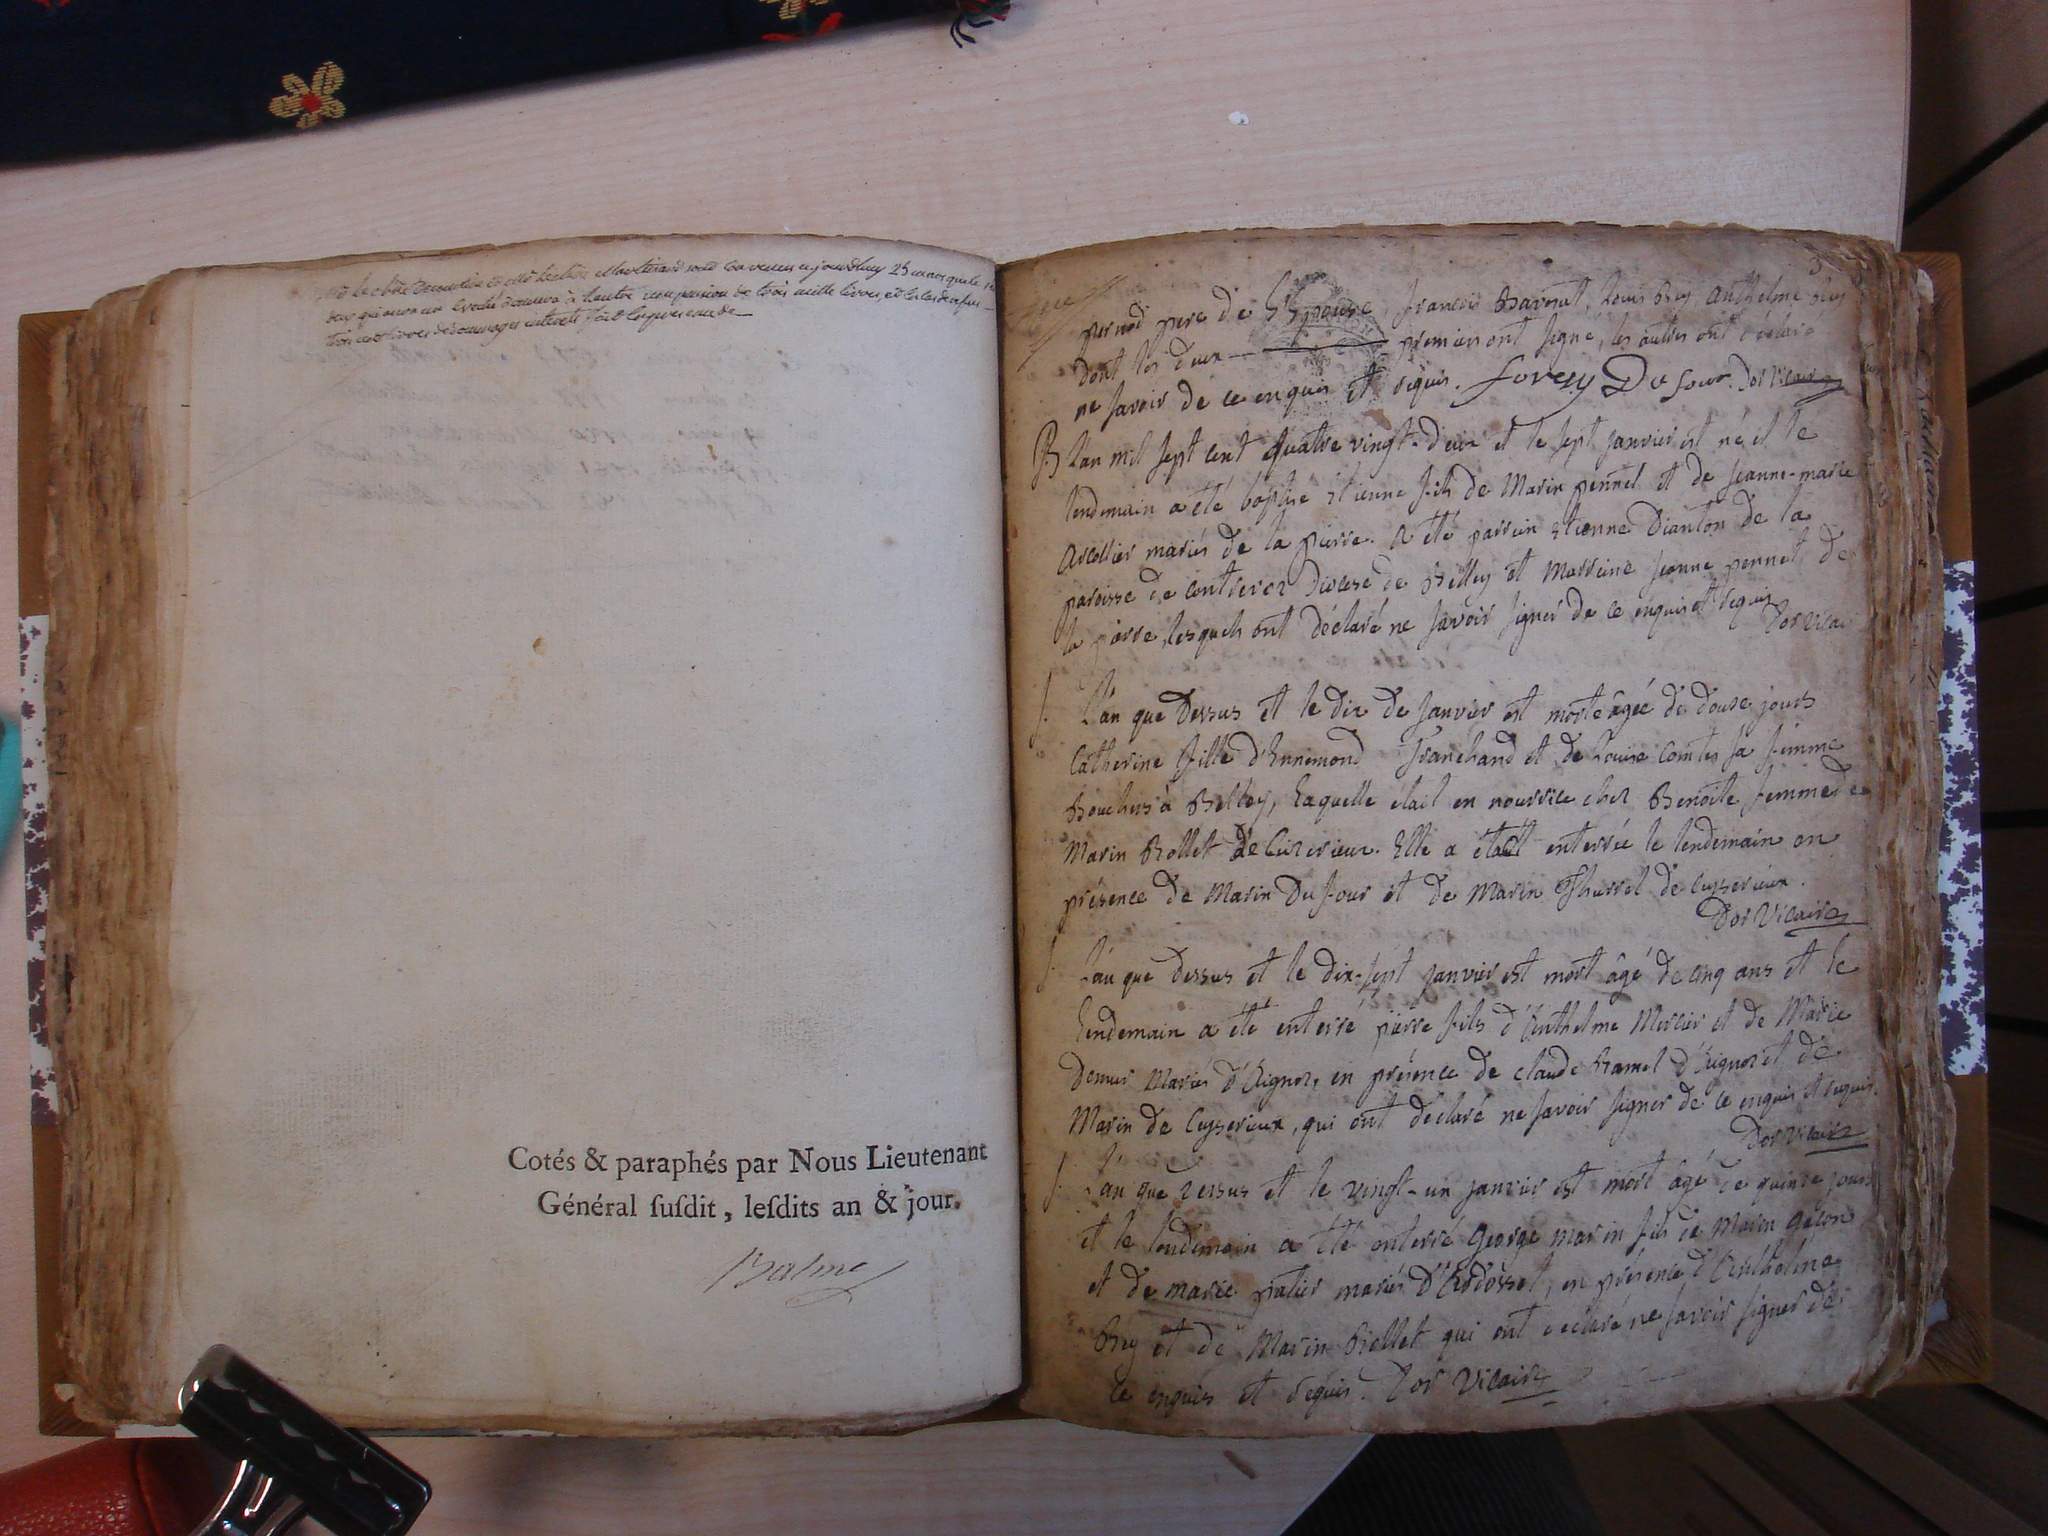 deux qui aura un
trois cent livres de dommages interets
Cotés & paraphés par Nous Lieutenant
Général ſuſdit, leſdits an & jour.
Balme
pernod pere de L'Epouse, françois Ravout, Louis Rey, Anthelme Rey
dont les deux premiers ont signé, les autres ont déclaré
ne savoir de ce enquis et requis. Dufour. Dor Vicaire
B L'an mil sept cent quatre vingt-deux et le sept janvier est né et le
lendemain a été baptisé Etienne fils de Marin pennet et de jeanne-marie
mariés de la pierre. A été parrein Etienne Dianton de la
paroisse de contrevoz Diocese de Belley et Marreine jeanne pennet de
la pierre, lesquels ont déclaré ne savoir signer de ce enquis et requis
Dor Vicai
S. L'an que Dessus et le dix de janvier est morte âgée de douse jours
Catherine fille d'Ennemond Tranchand et de Louise Comtes sa femme
Bouchers à Belley, Laquelle était en nourrice chez Benoîte femme de
Marin Rollet de Cuzerieux. Elle a été enterrée le lendemain en
présence de Marin Dufour et de Marin Thurrel de Cuyserieux.
Dor Vicaire
S. L'an que Dessus et le dix-sept janvier est mort âgé de cinq ans et le
Lendemain a été enterré pierre fils d'Anthelme Mercier et de Marie
Demur Mariés d'Aignoz, en présence de claude Ramel d'Aignoz et de
Marin de Cuyserieux, qui ont déclaré ne savoir signer de ce enquis et requis.
Dor Vicaire
S. L'an que dessus et le vingt-un janvier est mort âgé de quinze jours
et le lendemain a été enterré George Marin fils de Marin
et de marie mariés D'Ardosset, en présence d'Anthelme
Rey et de Marin Rollet qui ont déclaré ne savoir signer de
ce enquis et requis. Dor Vicaire